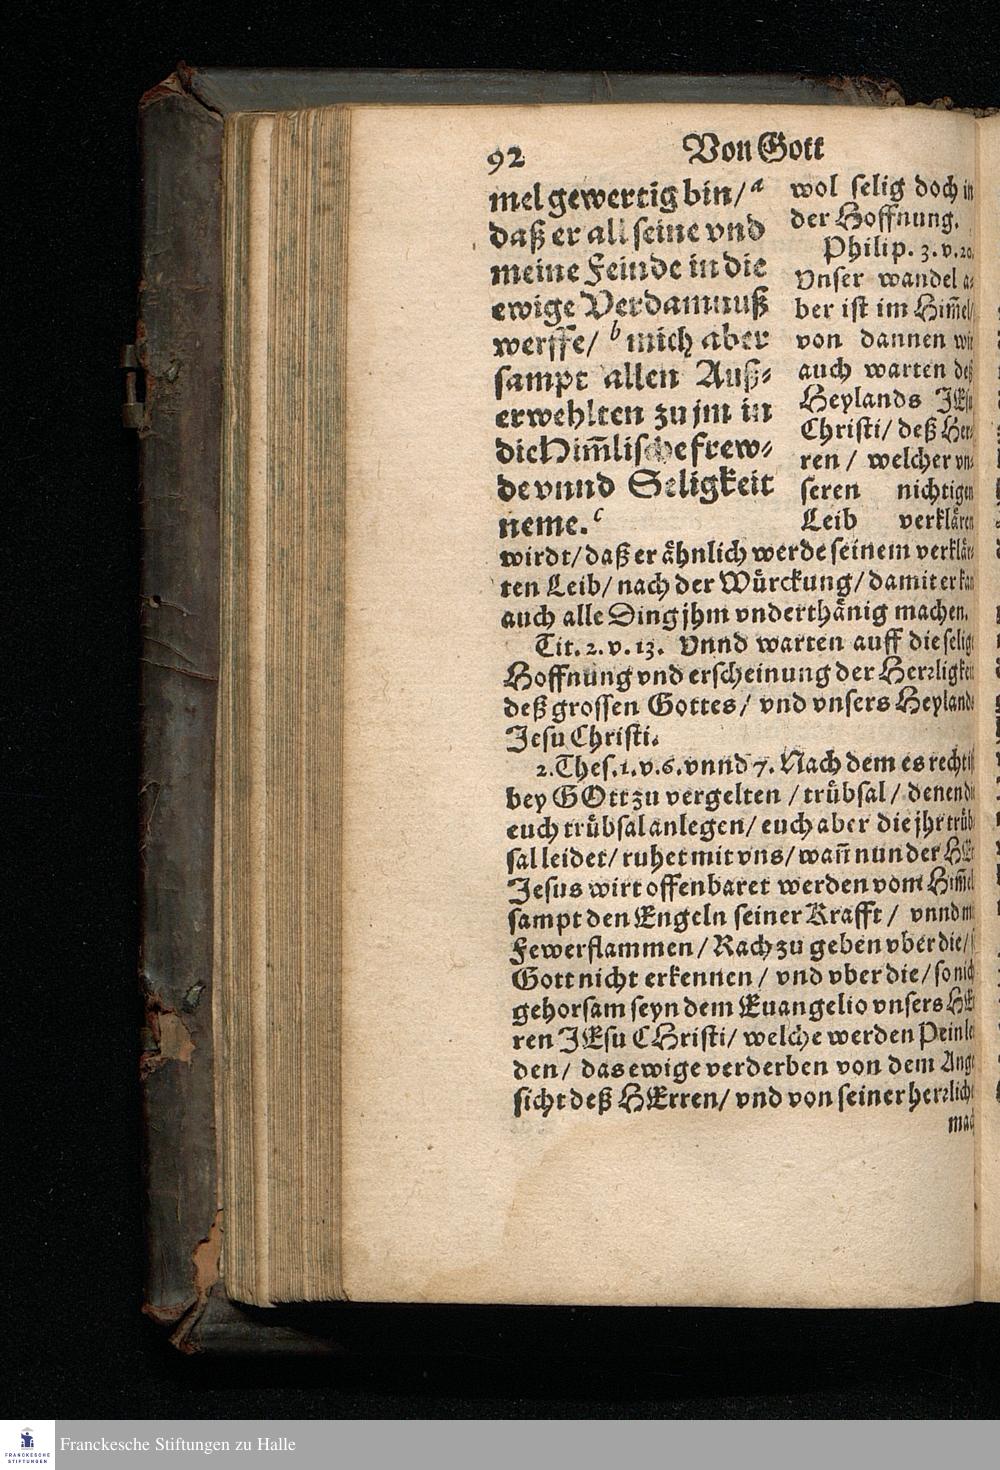 92
Von Gott
mel gewertig bin/ a
daß er all seine vnd
meine Feinde in die
ewige Verdamnuß
werffe/ b mich aber
sampt allen Auß⸗
erwehlten zu jm in
die Him̃lische frew⸗
de vnnd Seligkeit
neme. c
wol selig doch in
der Hoffnung.
Philip. 3. v. 20.
Vnser wandel a⸗
ber ist im Him̃el/
von dannen wir
auch warten deß
Heylands JEsu
Christi/ deß Her⸗
ren / welcher vn⸗
seren nichtigen
Leib verklären
wirdt/ daß er ähnlich werde seinem verklär⸗
ten Leib/ nach der Würckung/ damit er kan
auch alle Ding jhm vnderthänig machen.
Tit. 2. v. 13. Vnnd warten auff die selige
Hoffnung vnd erscheinung der Herꝛligkeit
deß grossen Gottes/ vnd vnsers Heylands
Jesu Christi.
2. Thes. 1. v. 6. vnnd 7. Nach dem es recht ist
bey GOtt zu vergelten / trübsal / denen die
euch trübsal anlegen/ euch aber die jhr trüb⸗
sal leidet/ ruhe mit vns/ wañ nun der HErr
Jesus wirt offenbaret werden vom Him̃el
sampt den Engeln seiner Krafft / vnnd mit
Fewerflammen/ Rach zu geben vber die/ so
Gott nicht erkennen / vnd vber die/ so nicht
gehorsam seyn dem Euangelio vnsers HEr⸗
ren JEsu CHristi/ welche werden Pein lei⸗
den/ das ewige verderben von dem Ange⸗
sicht deß HErren/ vnd von seiner herꝛlichen
mac
Franckesche Stiftungen zu Halle
FRANCKESCHE
STIFTUNGEN